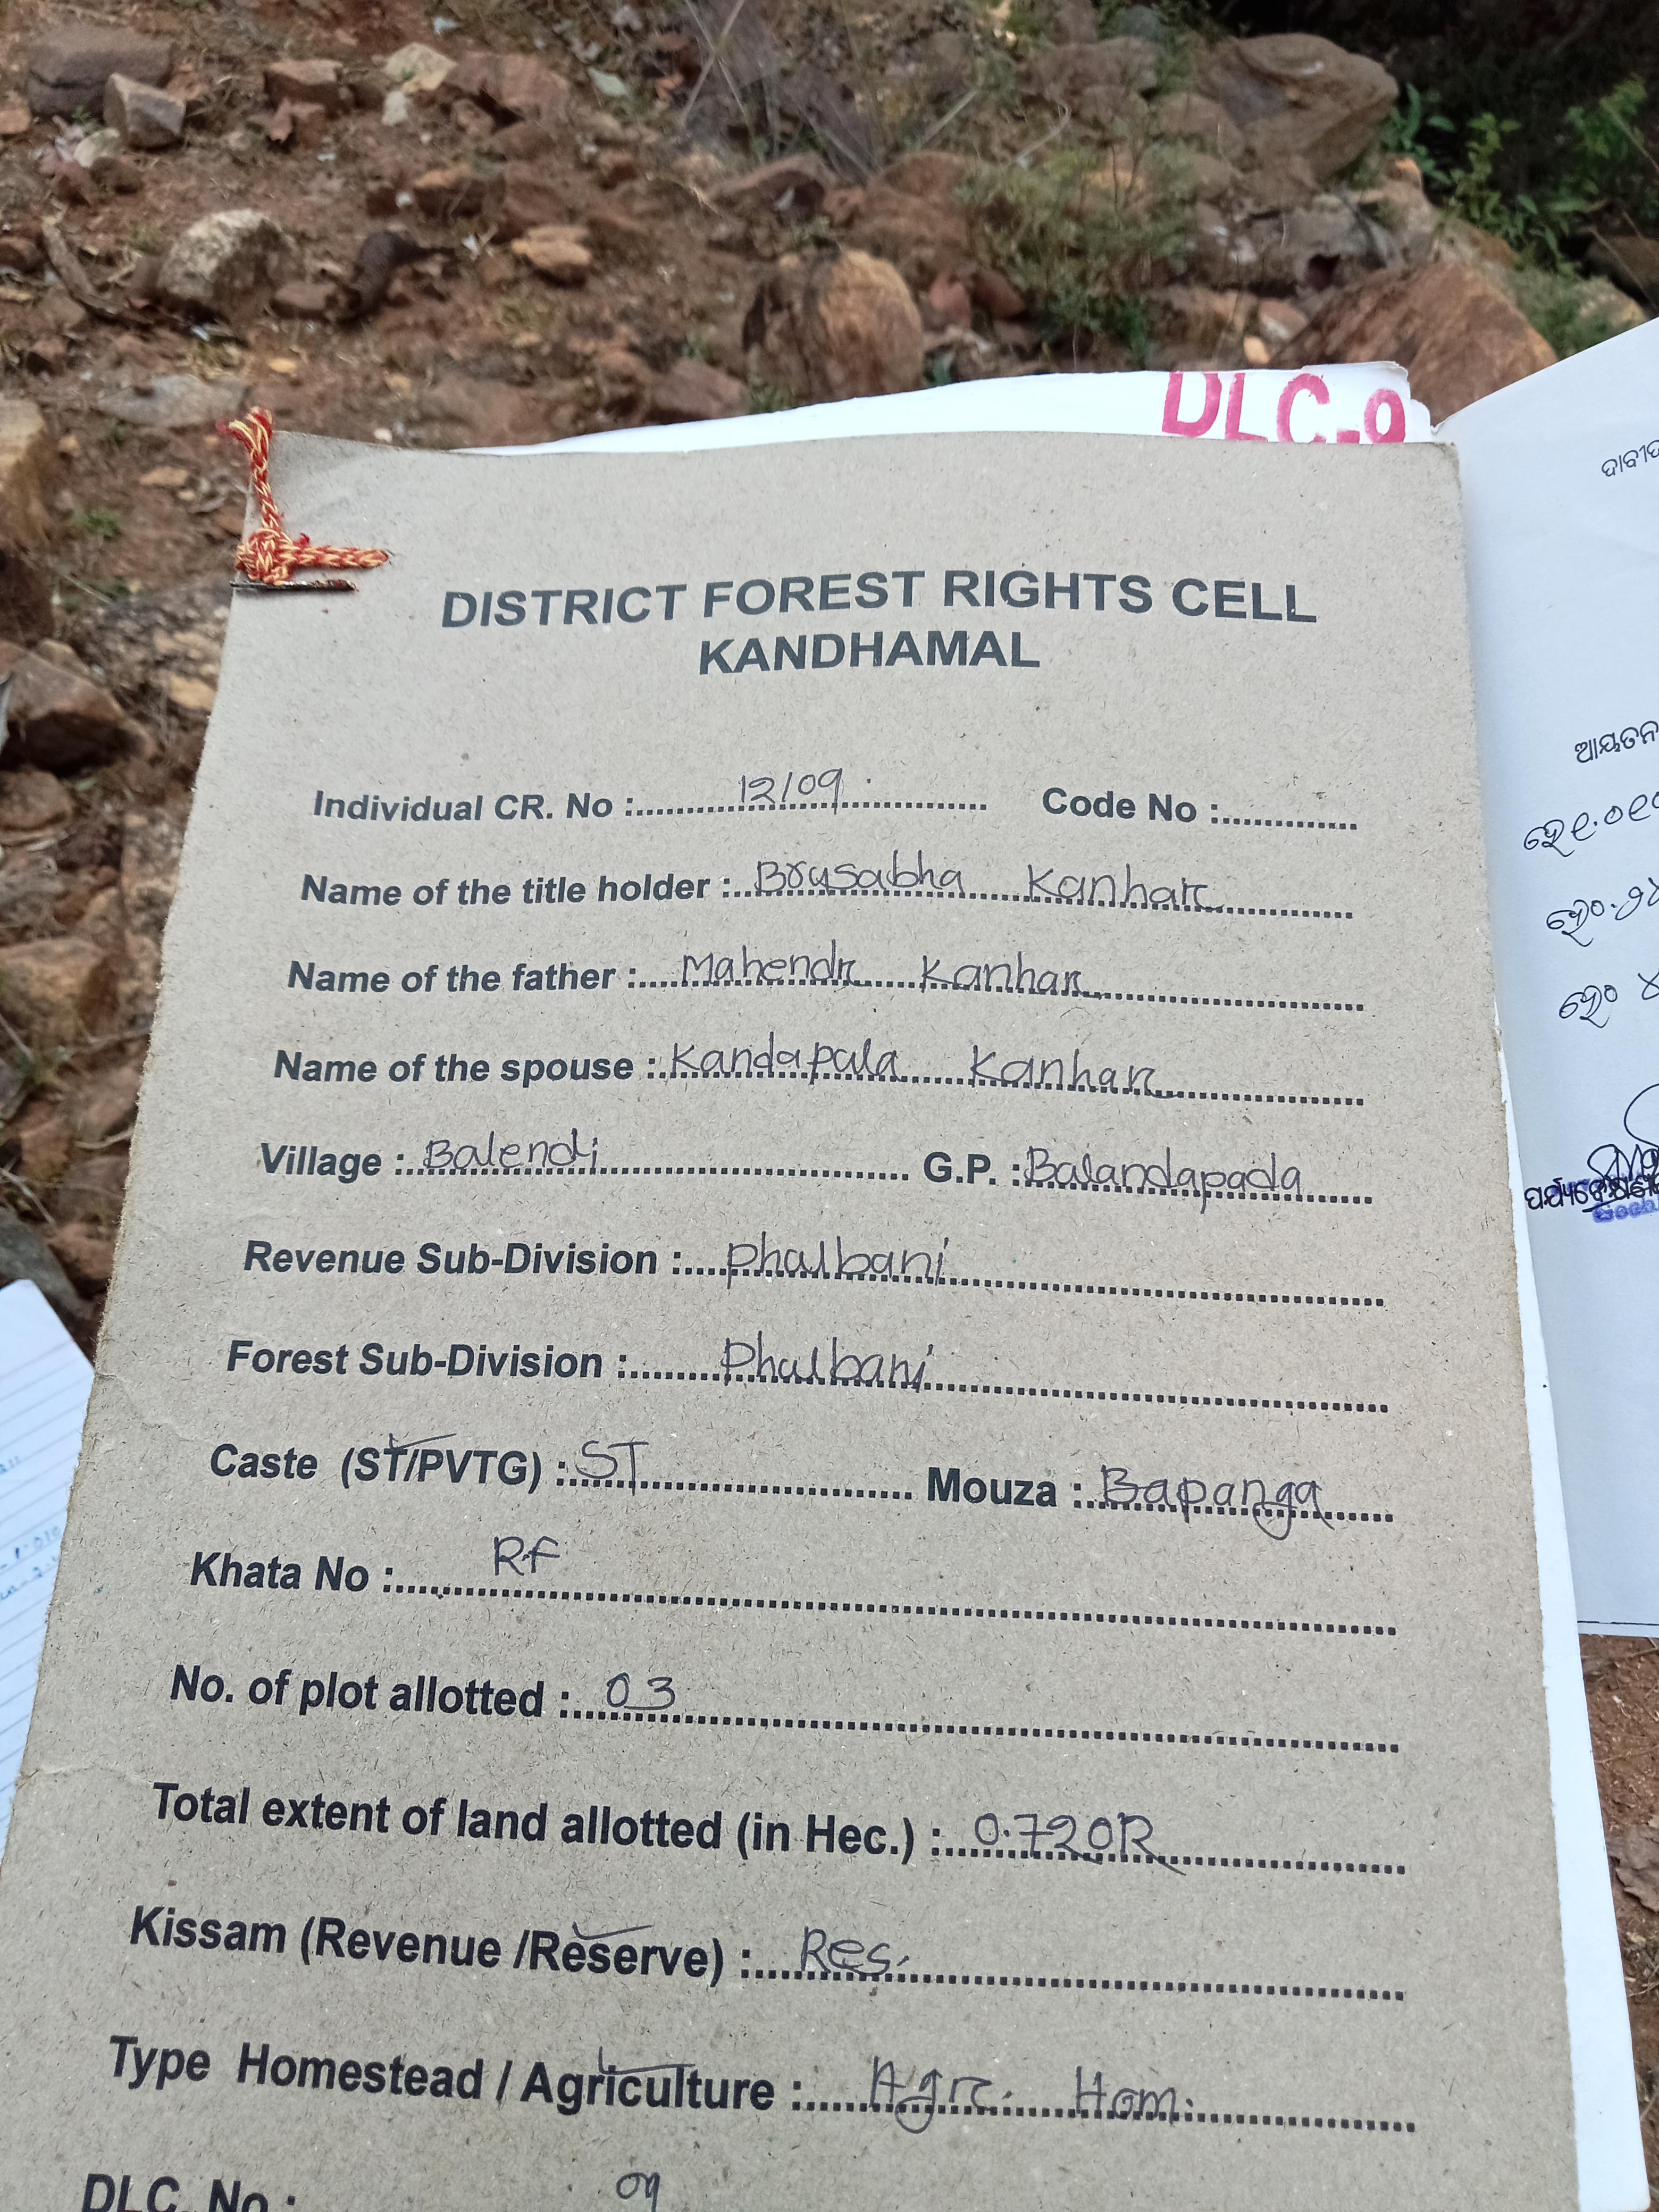 DLC-9
DISTRICT FOREST RIGHTS CELL
KANDHAMAL
Individual CR. No :.......12/09....... Code No :..............
Name of the title holder :..Brusabha Kanhar
Name of the father :....Mahendr Kanhar
Name of the spouse :.Kandapula Kanhar
Village :.Balendi....... G.P. :Balandapada
Revenue Sub-Division :....Phulbani
Forest Sub-Division :........Phulbani
Caste (ST/PVTG) :.ST....... Mouza : Bapanga
Khata No :....... RF
No. of plot allotted : 03
Total extent of land allotted (in Hec.) : 0.720R
Kissam (Revenue /Reserve) : Res.
Type Homestead / Agriculture : Agr. Hom.
DLC. No : 09
ଆୟତନ